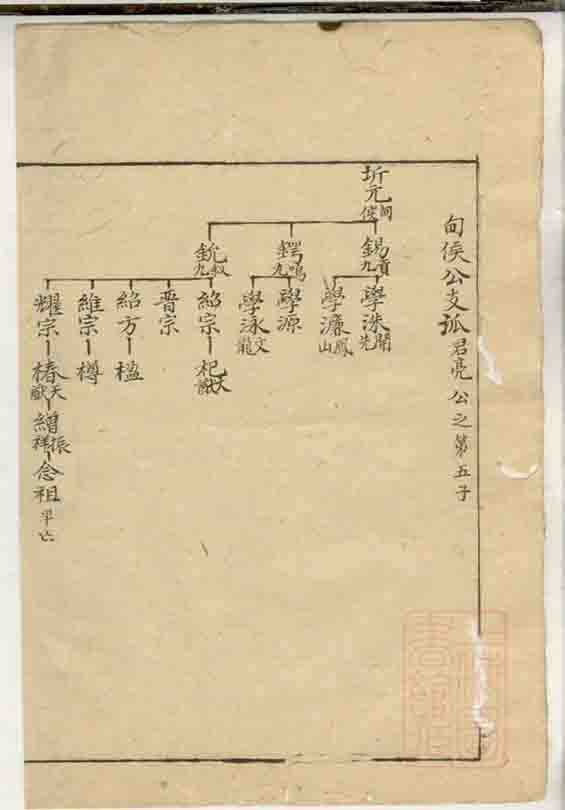 甸侯公支派 君亮公之第五子
圻元 甸侯
錫九 貢
學洙 閣先
學濂 鳳山
鍔九 鳴
學源
學泳 文龍
銃九 叙
紹宗 杞 天
晋宗
紹方 楹
維宗 樽
耀宗 椿 天献 繒 振祥 念祖 早亡